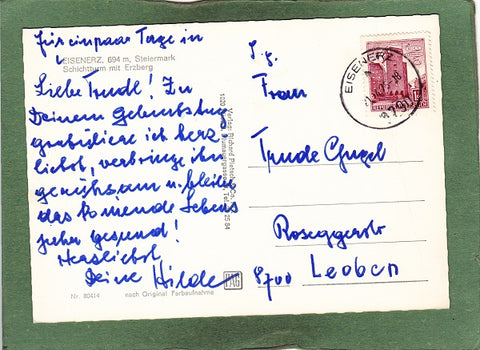 für ein paar Tage in
EISENERZ, 694 m, Steiermark
Schichtturm mit Erzberg
Liebe Trude! Zu
Deinem Geburtstag
gratuliere ich herz
lichst, verbringe ihn
geruhsam u. bleibe
das komende Lebens
jahr gesund!
Herzlichst
Deine Hilde
Nr. 80414
nach Original Farbaufnahme
PAG
EISENERZ
8790
Frau
Trude Gugel
Roseggerstr
8700 Leoben